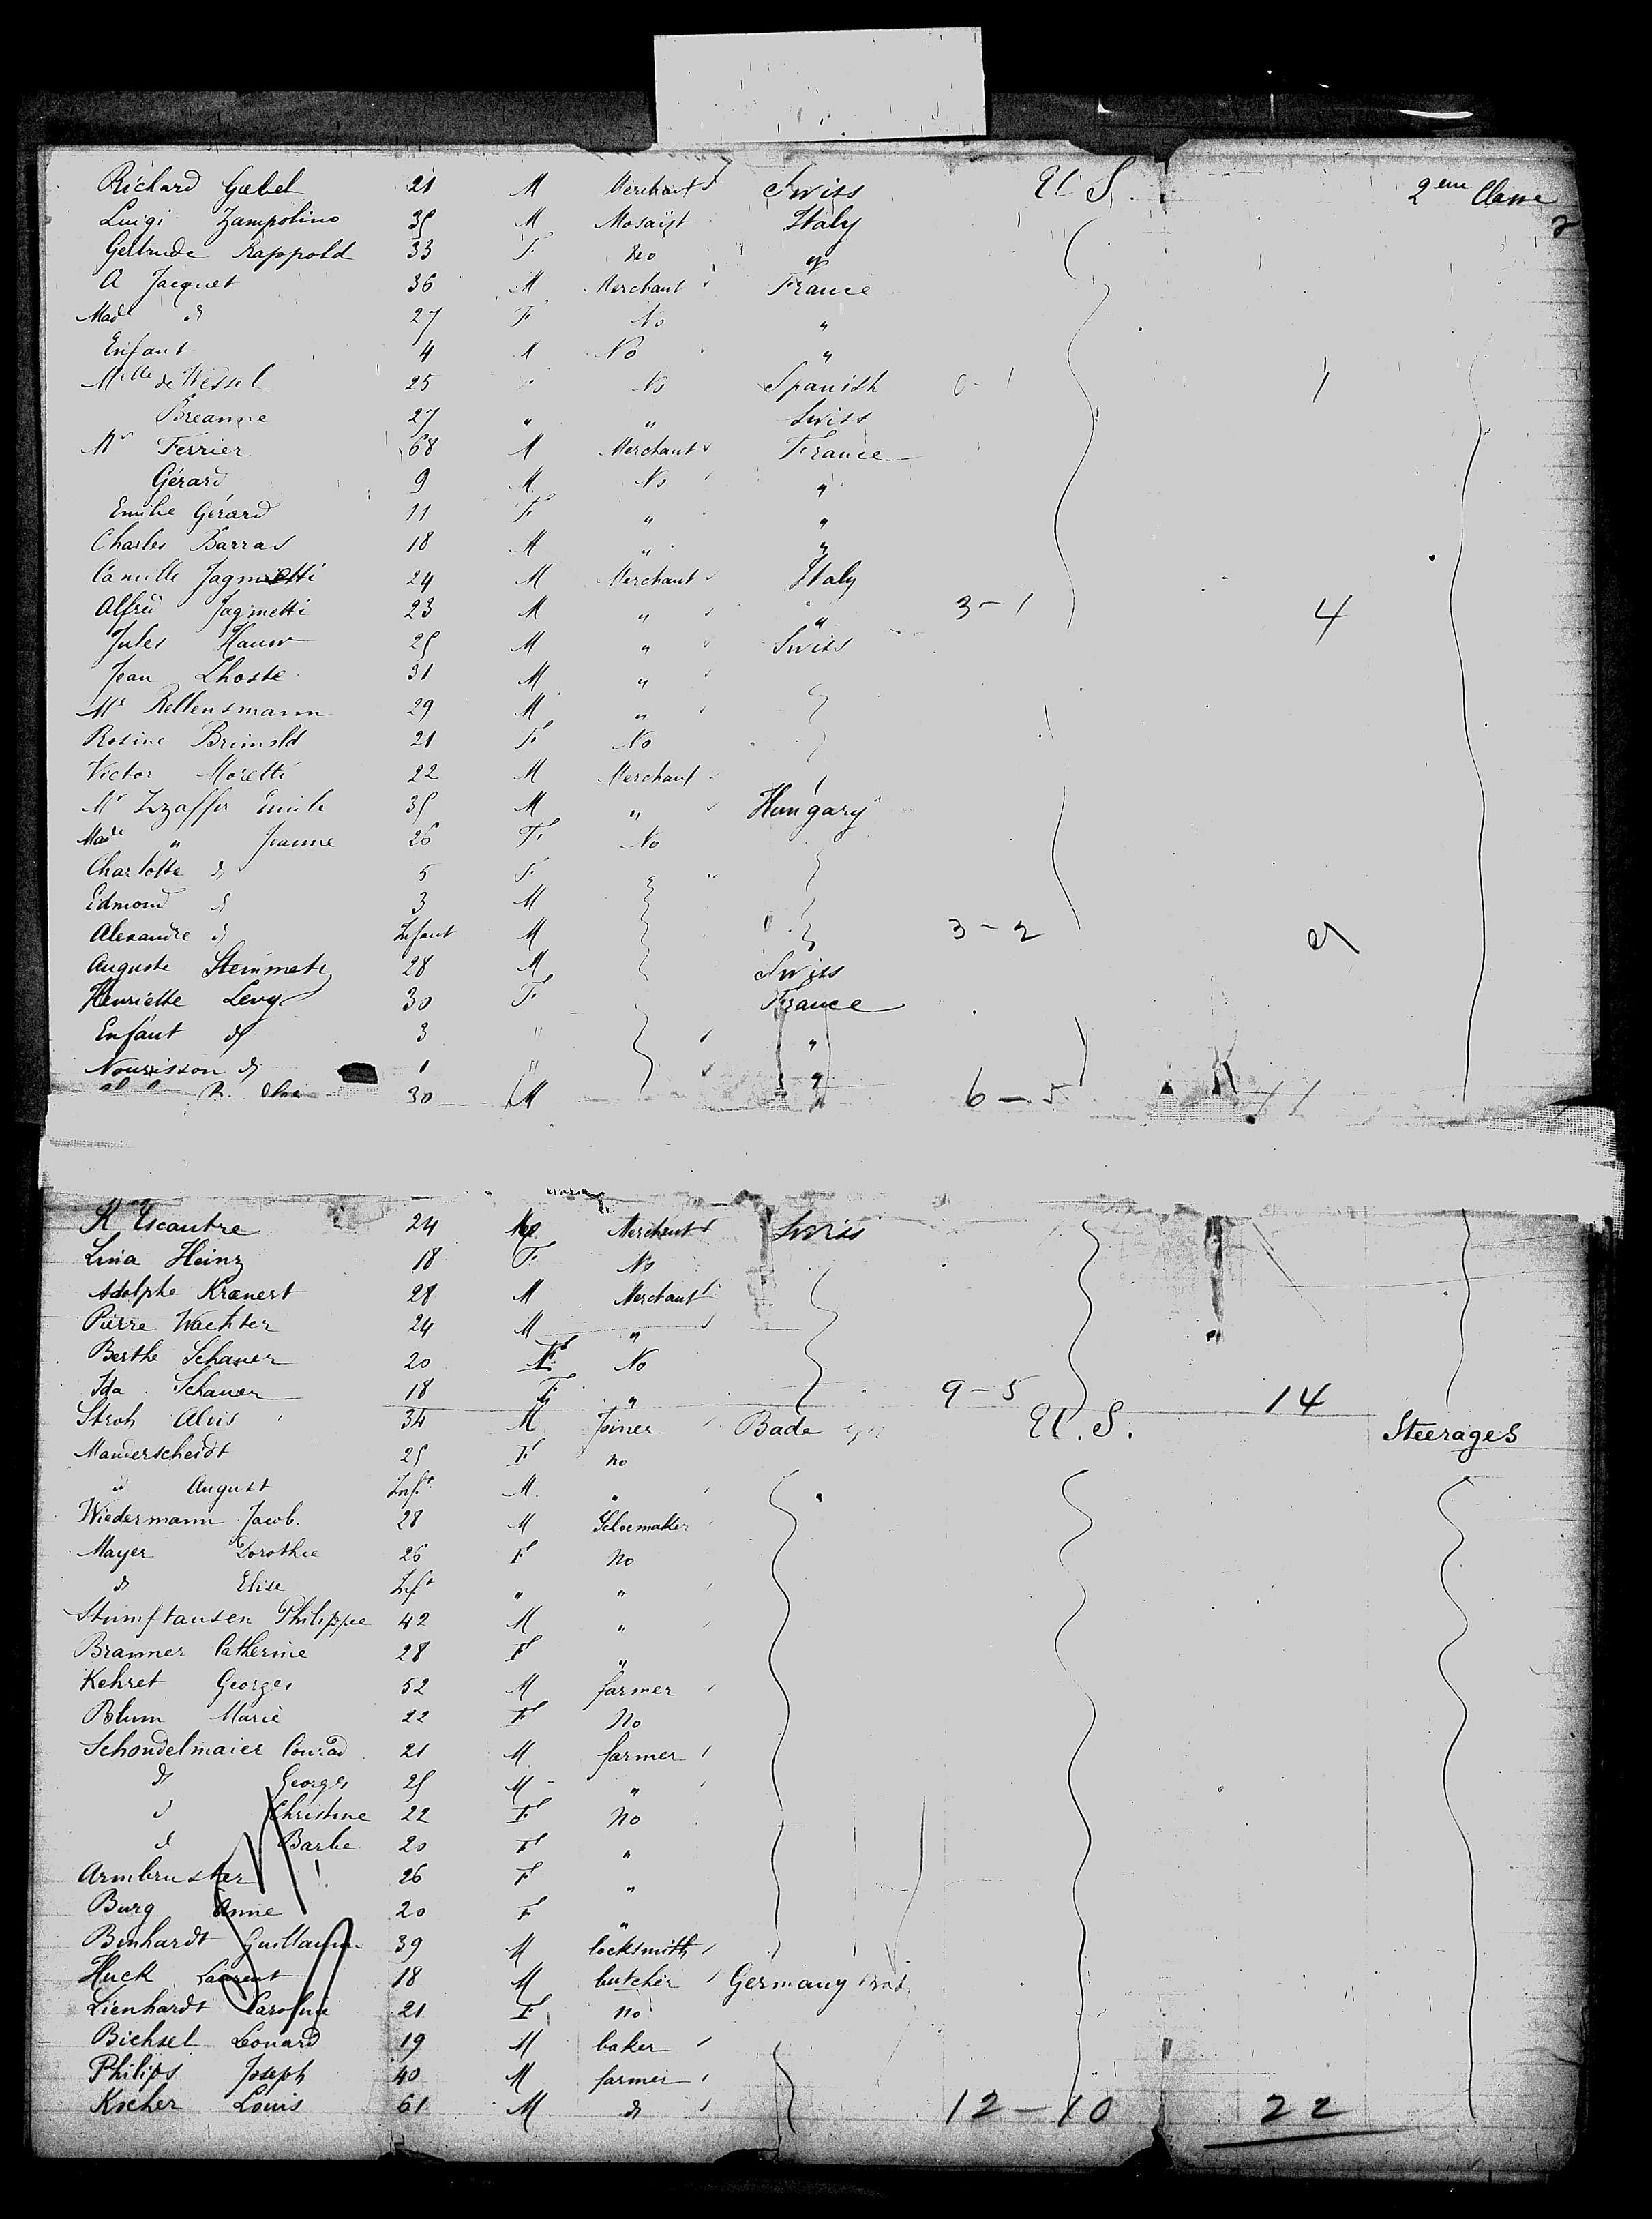 Richard Gæbel 21 M Merchant Swiss U S. 2eme Classe
Luigi Zampolino 35 M Mosaïst Italy
Gertrude Rappold 33 F. No "
A Jacquet 36 M Merchant France
Made d 27 F. No "
Enfant 4 M No "
Melle de Wessel 25 " No Spanish 0-1 1
Breanne 27 " " Swiss
Mr Ferrier 68 M Merchant France
Gérard 9 M No "
Emilie Gérard 11 F. " "
Charles Barras 18 M " "
Camille Jagmetti 24 M Merchant Italy
Alfred Jagmetti 23 M " " 3-1 4
Jules Hauw 25 M " Swiss
Jean Lhoste 31 M "
Mr Rellensmann 29 M "
Rosine 21 F. No
Victor Moretti 22 M Merchant
Mr Emile 35 M " Hungary
Made " Jeanne 26 F. No
Charlotte d 5 F.
Edmond d 3 M
Alexandre d Infant M 3-2
Auguste Steinmetz 28 M Swiss
Henriette Levy 30 F. France
Enfant d 3 " "
Nourisson d 1 " "
30 M 6-5 11
24 Merchant Swiss
Lina Heinz 18 F. No
Adolphe Krænert 28 M Merchant
Pierre Wachter 24 M "
Berthe Schauer 20 F. No
Ida Schauer 18 F. " 9-5 14
Stroh Alois 34 M Joiner Bade U.S. Steerages
Manderscheidt 25 F no
d August Inft M. "
Wiedermann Jacob. 28 M Schoemaker
Mayer Dorothée 26 F no
d Elise Inft " "
Stumfhausen Philippe 42 M "
Branner Catherine 28 F "
Kehret Georges 52 M farmer
Blum Marie 22 F No
Schondelmaier Conrad 21 M farmer
d Georges 25 M "
d Christine 22 F no
d Barbe 20 F "
Armbruster 26 F "
Burg Anne 20 F "
Benhardt Guillaume 39 M locksmith
Huck Laurent 18 M butcher Germany
Lienhardt Caroline 21 F no
Bichsel Leonard 19 M baker
Philips Joseph 40 M farmer
Kocher Louis 61 M d 12-10 22